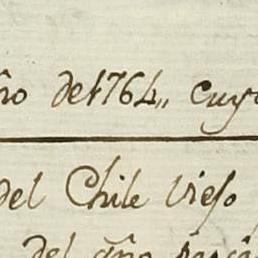 ño de 1764,, cuyo
del Chile Viejo
del año